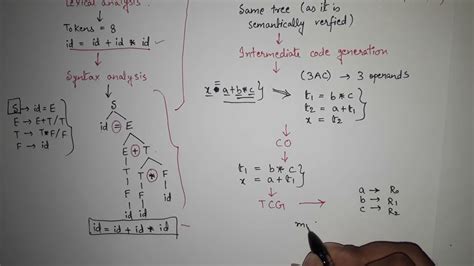 Lexical analysis
Tokens = 8
id = id + id * id
Syntax analysis
S → id = E
E → E+T/T
T → T*F/F
F → id
S
id = E
E + T
T T * F
F F id
id id
id = id + id * id
Same tree (as it is
semantically verfied)
Intermediate code generation
(3AC) → 3 operands
x = a+b*c ⇒ t₁ = b * c
t₂ = a + t₁
x = t₂
CO
t₁ = b * c
x = a + t₁
TCG →
a → R₀
b → R₁
c → R₂
m